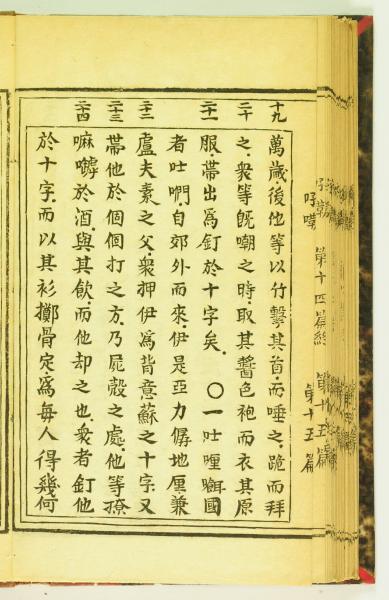 十九 萬歲後他等以竹擊其首而唾之跪而拜
二十 之衆等旣嘲之時取其醬色袍而衣其原
二十一 服帶出爲釘於十字矣〇一吐哩𠵽國
者吐嗍自郊外而來伊是亞力僝地厘兼
二十二 盧夫素之父衆押伊爲揹意蘇之十字又
二十三 帶他於個個打之方乃屍殼之處他等撩
二十四 嘛㘔於酒與其飲而他却之也衆者釘他
於十字而以其衫擲骨定爲每人得幾何
第十四篇終
第十五篇
第十五篇